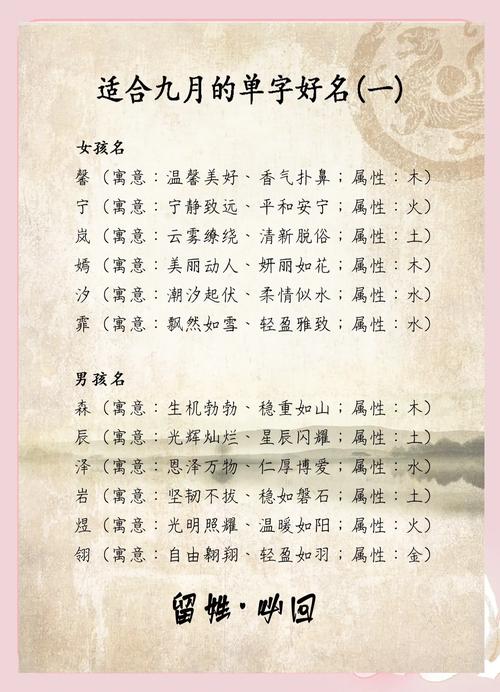 适合九月的单字好名(一)
女孩名
馨（寓意：温馨美好、香气扑鼻；属性：木）
宁（寓意：宁静致远、平和安宁；属性：火）
岚（寓意：云雾缭绕、清新脱俗；属性：土）
嫣（寓意：美丽动人、妍丽如花；属性：木）
汐（寓意：潮汐起伏、柔情似水；属性：水）
霏（寓意：飘然如雪、轻盈雅致；属性：水）
男孩名
森（寓意：生机勃勃、稳重如山；属性：木）
辰（寓意：光辉灿烂、星辰闪耀；属性：土）
泽（寓意：恩泽万物、仁厚博爱；属性：水）
岩（寓意：坚韧不拔、稳如磐石；属性：土）
煜（寓意：光明照耀、温暖如阳；属性：火）
翎（寓意：自由翱翔、轻盈如羽；属性：金）
留姓·必回